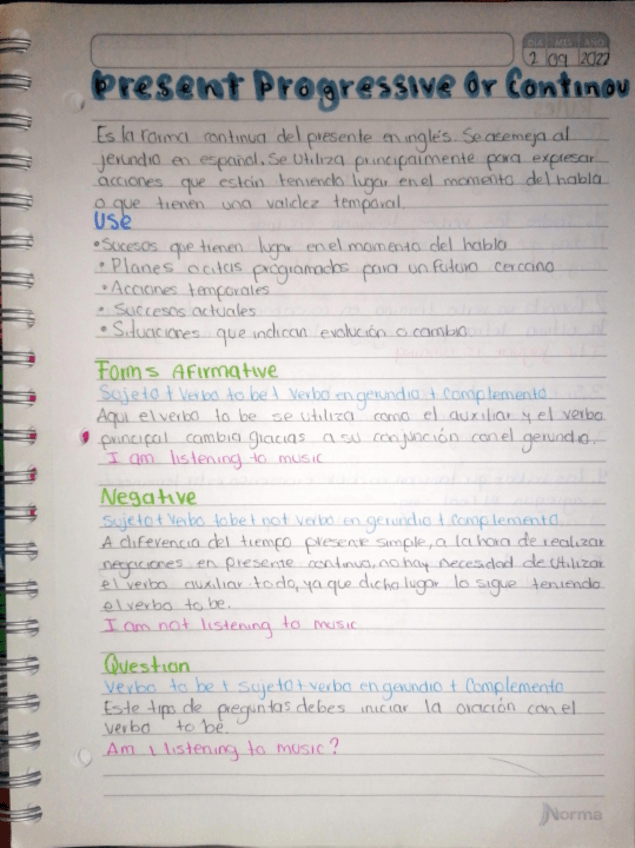 DIA MES AÑO
2 09 2022
Present Progressive Or Continou
Es la forma continua del presente en inglés. Se asemeja al
jerundio en español. Se utiliza principalmente para expresar
acciones que están teniendo lugar en el momento del habla
o que tienen una validez temporal.
Use
• Sucesos que tienen lugar en el momento del habla
• Planes o citas programados para un futuro cercano
• Acciones temporales
• Succesos actuales
• Situaciones que indican evolución o cambio
Forms Afirmative
Sujeto + Verbo to be + verbo en gerundio + Complemento
Aqui el verbo to be se utiliza como el auxiliar y el verbo
principal cambia gracias a su conjunción con el gerundio.
I am listening to music
Negative
Sujeto + Verbo to be + not verbo en gerundio + complemento
A diferencia del tiempo presente simple, a la hora de realizar
negaciones en presente continuo, no hay necesidad de utilizar
el verbo auxiliar to do, ya que dicho lugar lo sigue teniendo
el verbo to be.
I am not listening to music
Question
Verbo to be + sujeto + verbo en gerundio + Complemento
Este tipo de preguntas debes iniciar la oración con el
verbo to be.
Am I listening to music?
Norma